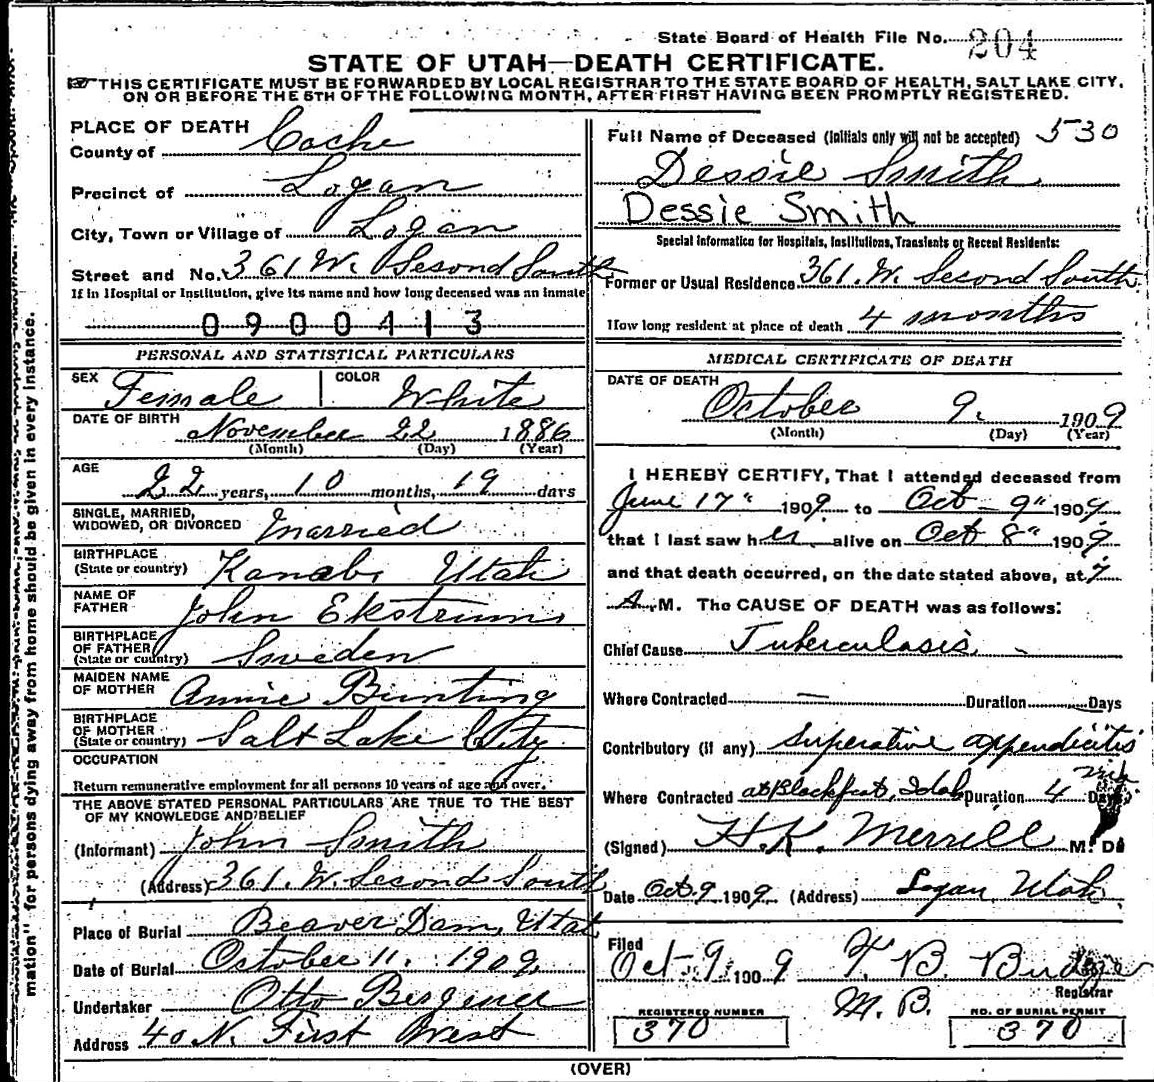 State Board of Health File No. 204
STATE OF UTAH—DEATH CERTIFICATE.
THIS CERTIFICATE MUST BE FORWARDED BY LOCAL REGISTRAR TO THE STATE BOARD OF HEALTH, SALT LAKE CITY,
ON OR BEFORE THE 5TH OF THE FOLLOWING MONTH, AFTER FIRST HAVING BEEN PROMPTLY REGISTERED.
PLACE OF DEATH
County of Cache
Precinct of Logan
City, Town or Village of Logan
Street and No. 361 W. Second South
If in Hospital or Institution, give its name and how long deceased was an inmate
0900413
PERSONAL AND STATISTICAL PARTICULARS
SEX Female COLOR White
DATE OF BIRTH November 22 1886
(Month) (Day) (Year)
AGE
22 years, 10 months, 19 days
SINGLE, MARRIED,
WIDOWED, OR DIVORCED Married
BIRTHPLACE
(State or country) Kanab, Utah
NAME OF
FATHER John Ekstrum
BIRTHPLACE
OF FATHER
(State or country) Sweden
MAIDEN NAME
OF MOTHER Annie Bunting
BIRTHPLACE
OF MOTHER
(State or country) Salt Lake City
OCCUPATION
Return remunerative employment for all persons 10 years of age and over.
THE ABOVE STATED PERSONAL PARTICULARS ARE TRUE TO THE BEST
OF MY KNOWLEDGE AND BELIEF
(Informant) John Smith
(Address) 361. W. Second South
Place of Burial Beaver Dam, Utah
Date of Burial October 11. 1909
Undertaker Otto
Address 40 N. First West
Full Name of Deceased (Initials only will not be accepted) 530
Dessie Smith
Dessie Smith
Special Information for Hospitals, Institutions, Transients or Recent Residents:
Former or Usual Residence 361. W. Second South
How long resident at place of death 4 months
MEDICAL CERTIFICATE OF DEATH
DATE OF DEATH
October 9. 1909
(Month) (Day) (Year)
I HEREBY CERTIFY, That I attended deceased from
June 17" 1909 to Oct - 9" 1909
that I last saw her alive on Oct 8" 1909
and that death occurred, on the date stated above, at 7
A.M. The CAUSE OF DEATH was as follows:
Chief Cause Tuberculosis
Where Contracted — Duration Days
Contributory (if any) Superative appendicitis
Where Contracted at Blackfoot, Idah Duration 4 Days
(Signed) H. K. Merrill M. D.
Date Oct. 9 1909 (Address) Logan, Utah.
Filed
Oct. 9 1909 T. B. Budge
Registrar
M. B.
REGISTERED NUMBER
370
NO. OF BURIAL PERMIT
370
(OVER)
mation" for persons dying away from home should be given in every instance.